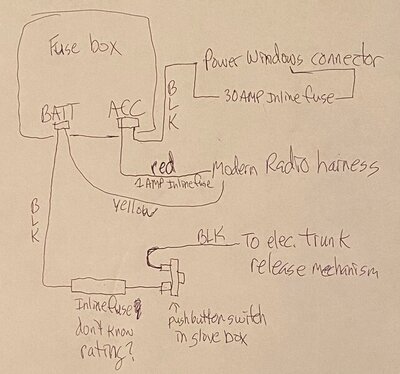 Fuse box
BATT
ACC
BLK
Power Windows connector
30AMP Inline fuse
red
1 AMP Inline fuse
Modern Radio harness
yellow
BLK
BLK
To elec. trunk
release mechanism
Inline fuse
don't know
rating?
pushbutton switch
in glove box